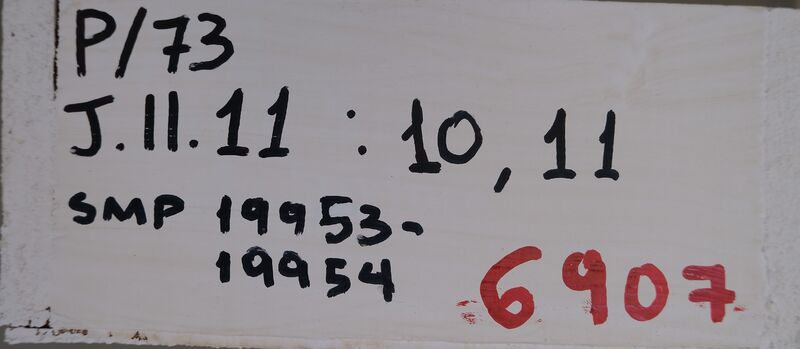 P/73
J.II.11 : 10, 11
SMP 19953-
19954
6907